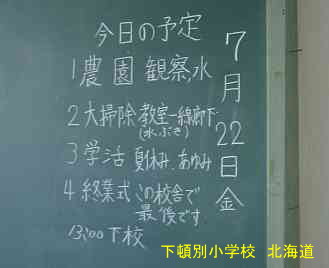 今日の予定
1 農園 観察,水
2 大掃除 教室→線廊下
(水ぶき)
3 学活 夏休み,あゆみ
4 終業式 この校舎で
最後です
13:00 下校
7月22日金
下頓別小学校 北海道